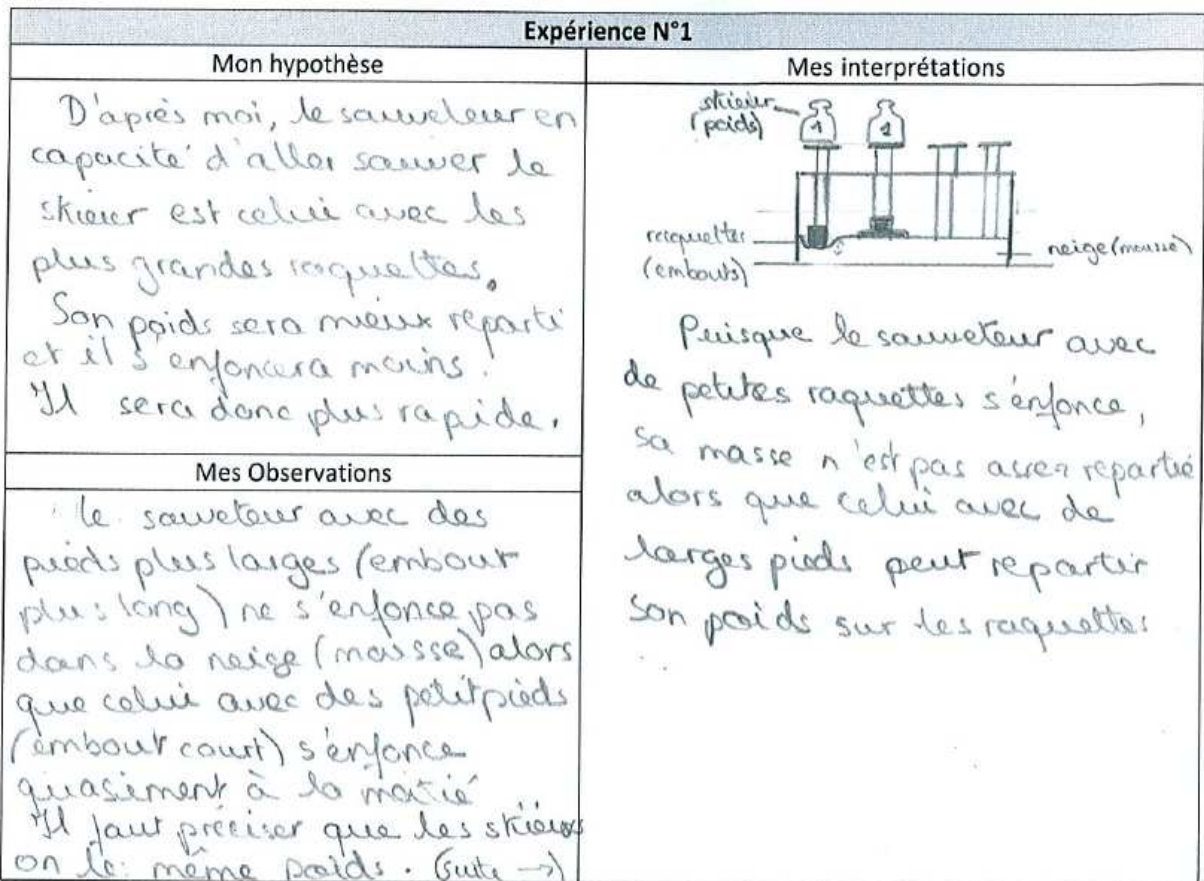 Expérience N°1
Mon hypothèse
D'après moi, le sauveteur en
capacité d'aller sauver le
skieur est celui avec les
plus grandes raquettes.
Son poids sera mieux réparti
et il s'enfoncera moins.
Il sera donc plus rapide.
Mes Observations
le sauveteur avec des
pieds plus larges (embout
plus long) ne s'enfonce pas
dans la neige (mousse) alors
que celui avec des petit pieds
(embout court) s'enfonce
quasiment à la moitié
Il faut préciser que les skieurs
on le même poids. (suite →)
Mes interprétations
skieur
(poids)
1
2
raquettes
(embouts)
neige (mousse)
Puisque le sauveteur avec
de petites raquettes s'enfonce,
sa masse n'est pas assez repartie
alors que celui avec de
larges pieds peut repartir
son poids sur les raquettes